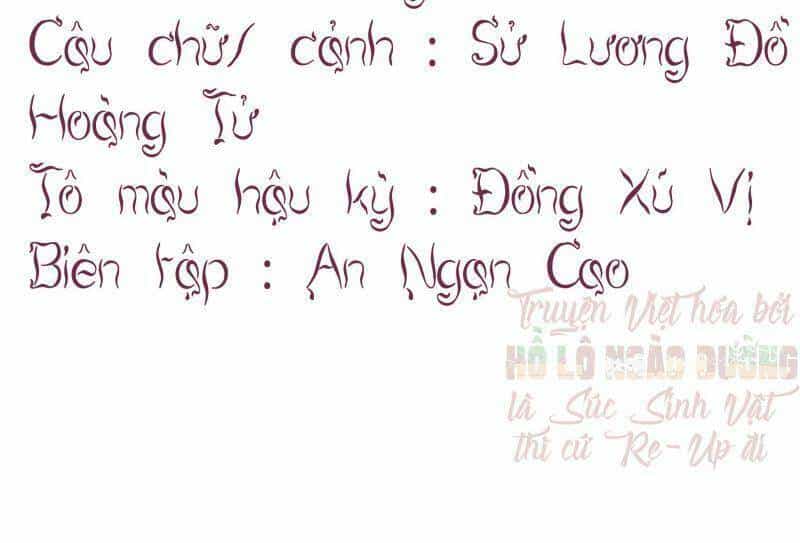 Câu chữ/ cảnh : Sử Lương Đồ
Hoàng Tử
Tô màu hậu kỳ : Đồng Xú Vị
Biên tập : An Ngạn Cao
Truyện Việt hóa bởi
HỒ LÔ NGÀO ĐƯỜNG
là Súc Sinh Vật
thì cứ Re-Up đi